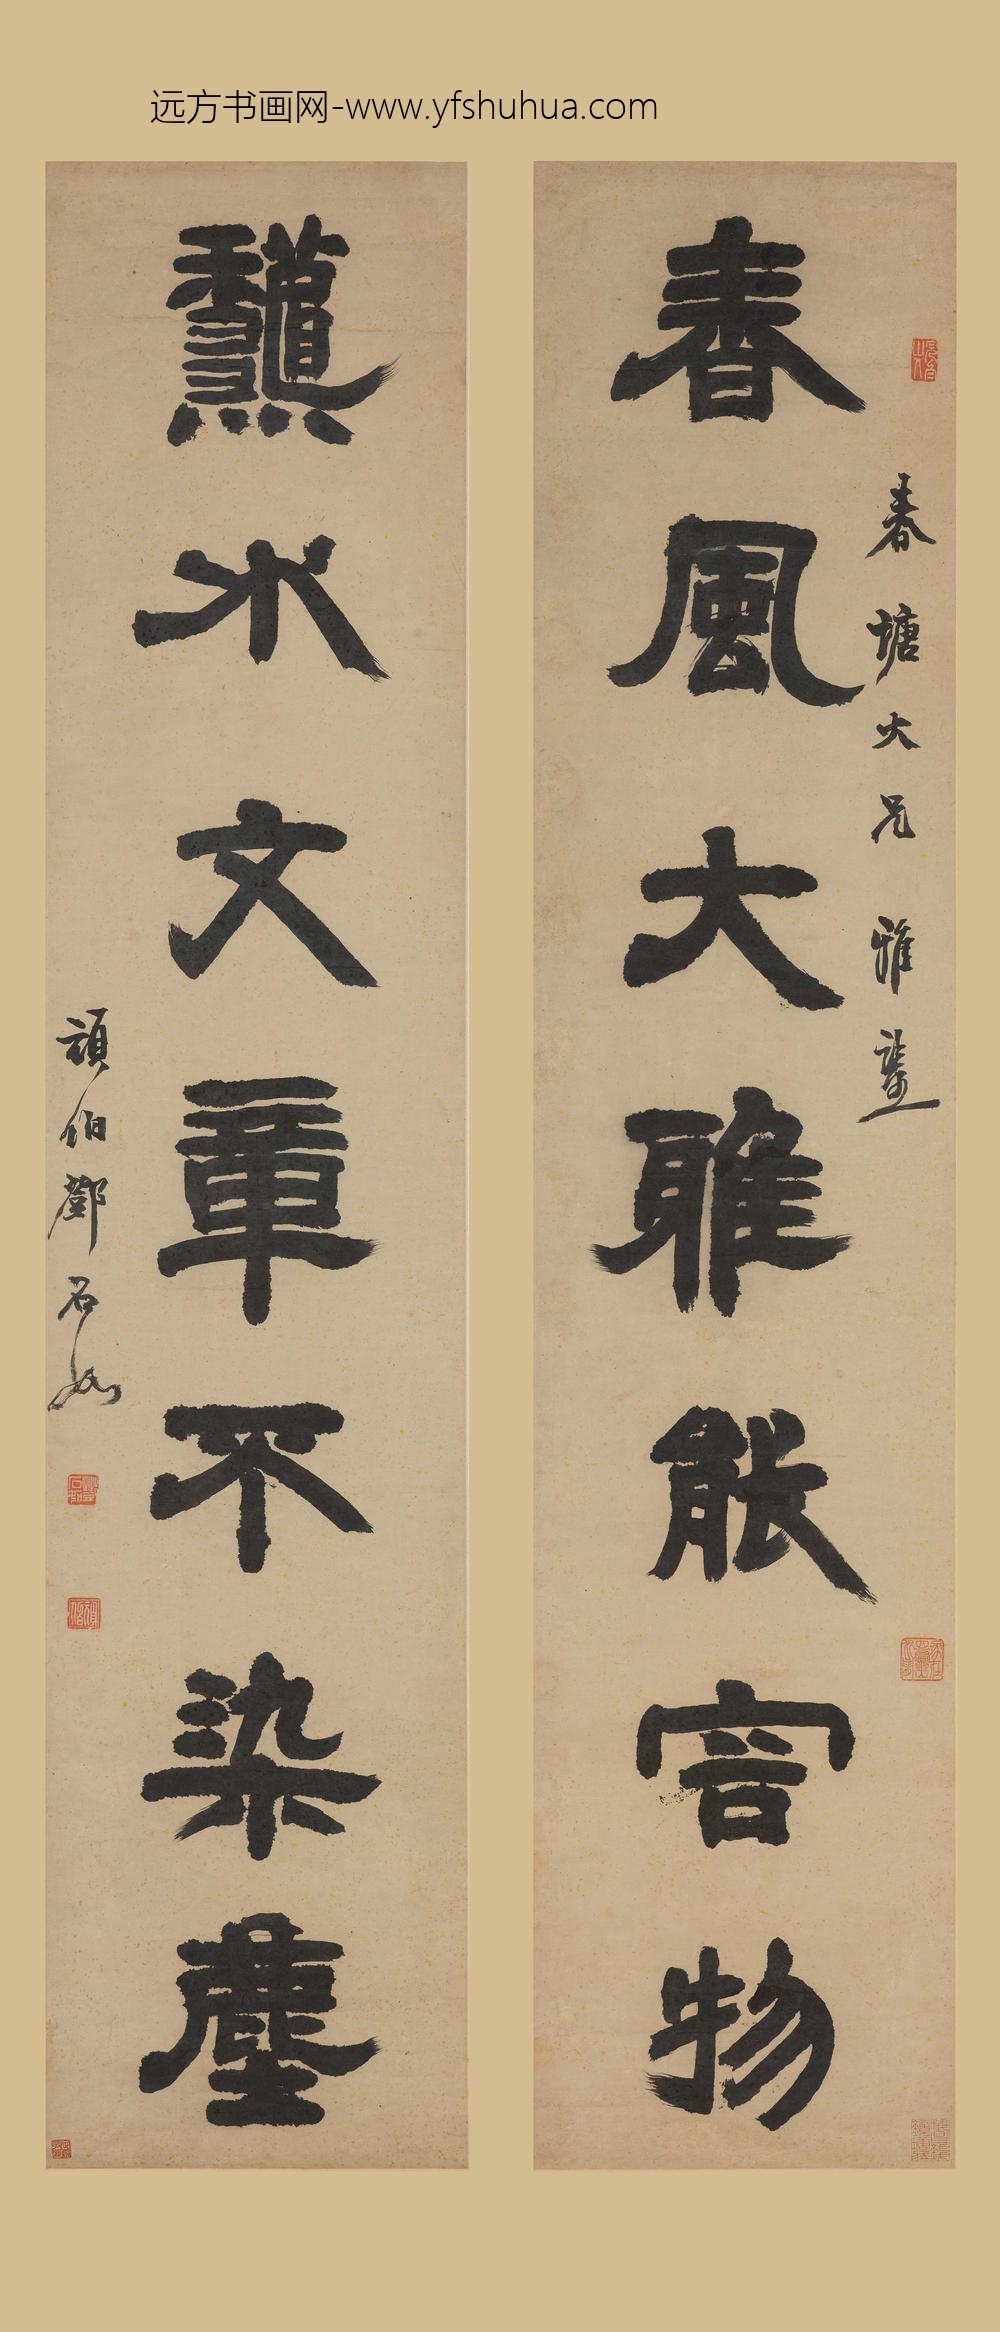 远方书画网-www.yfshuhua.com
春塘大兄 雅鑒
春風大雅能容物
龝水文章不染塵
頑伯鄧石如